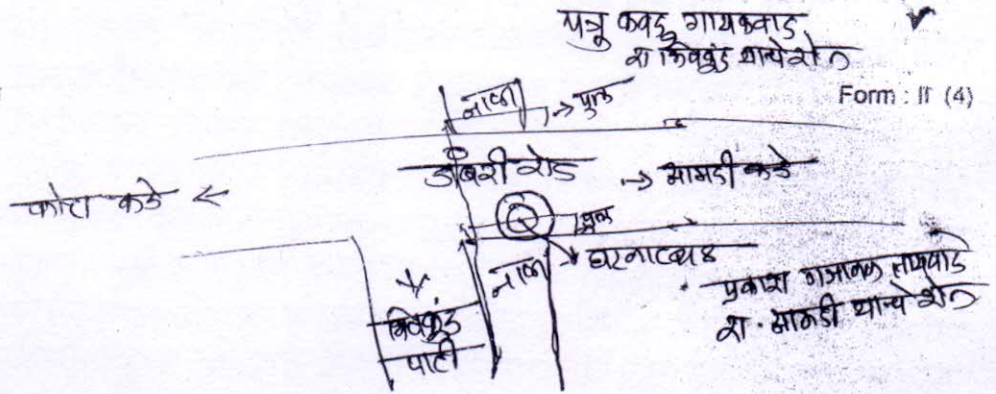 पत्रु कवडू गायकवाड
रा शिवकुंड याचे शेत
Form : II (4)
नाला → पुल
डांबरी रोड → मागडी कडे
कोटा कडे ←
पुल
नाला घटनास्थळ
प्रकाश गजानन गायकवाड
रा. मागडी याचे शेत
शिवकुंड
पाटी